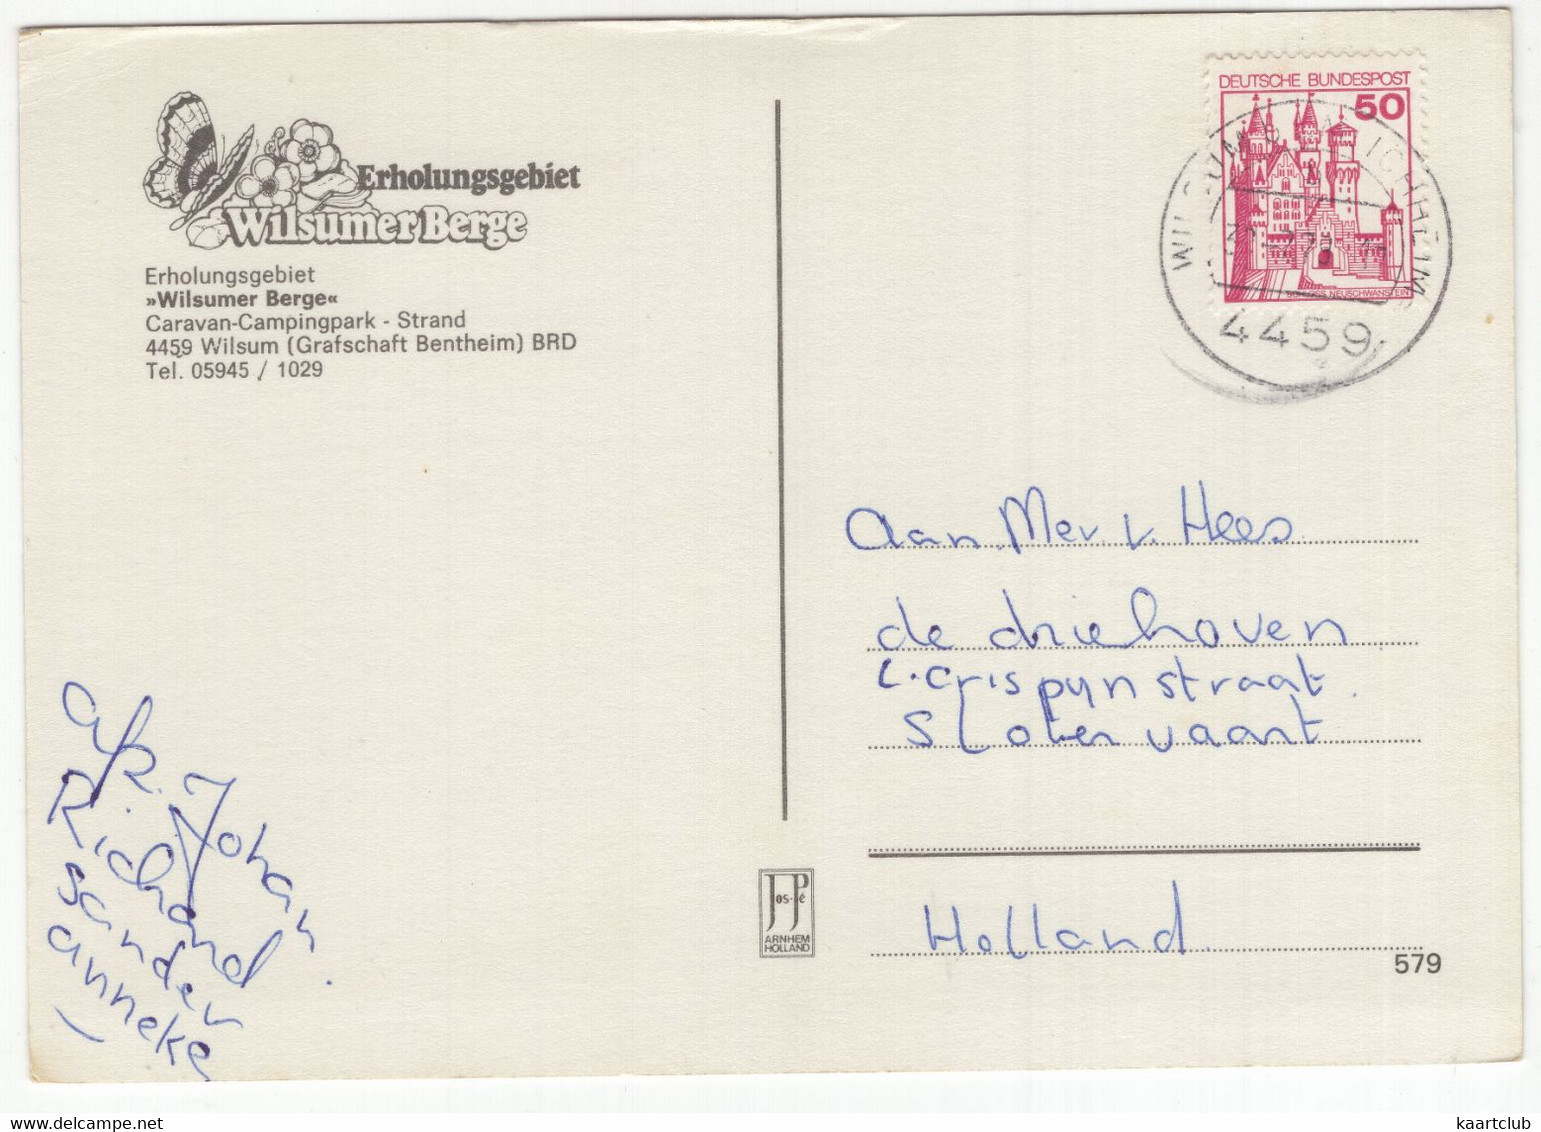 Erholungsgebiet
Wilsumer Berge
Erholungsgebiet
»Wilsumer Berge«
Caravan-Campingpark - Strand
4459 Wilsum (Grafschaft Bentheim) BRD
Tel. 05945 / 1029
DEUTSCHE BUNDESPOST
50
SCHLOSS NEUSCHWANSTEIN
WILSUM
4459
Aan Mev v. Hees
de driehoven
L. Crispijnstraat.
Slotervaart
Holland.
579
Jos-Pé
ARNHEM
HOLLAND
Johan.
Richard
Sander
Anneke
www.delcampe.net
kaartclub